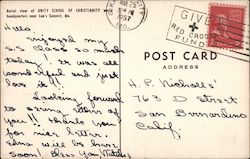 Aerial view of UNITY SCHOOL OF CHRISTIANITY
headquarters near Lee's Summit, Mo.
Hello
enjoyed my
S.S Class so much
today! It was all
wonderful and just
has it!
Looking forward
to seeing
you!! Thank you
for nice letter.
Edna will be here
soon! Bless You
MAR 25
1957
GIVE
RED CROSS
FUND
POST CARD
ADDRESS
H. P. Nicholls
763 D street
San Bernardino
Calif.